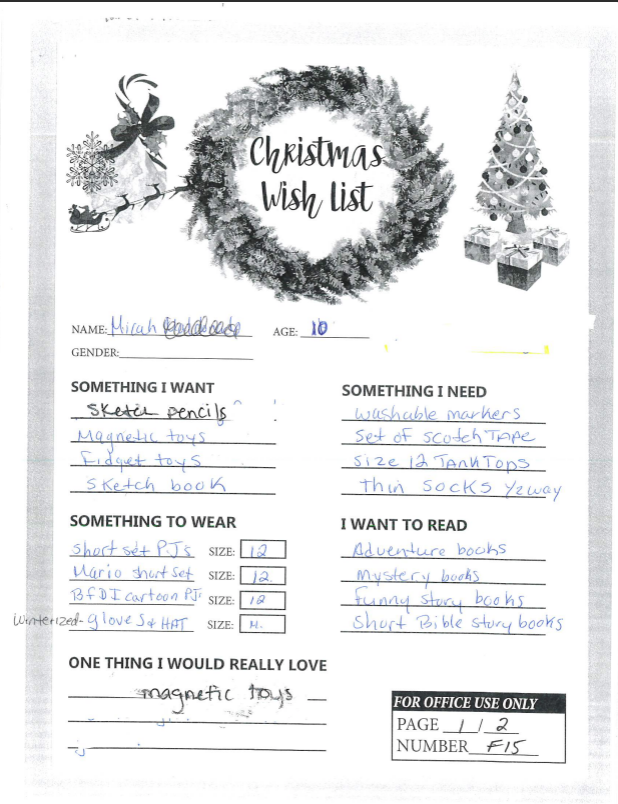 Christmas
Wish List
NAME: Micah
AGE: 10
GENDER:
SOMETHING I WANT
Sketch pencils
Magnetic toys
Fidget toys
Sketch book
SOMETHING I NEED
washable markers
Set of scotch TAPE
Size 12 Tank Tops
thin socks 1/2 way
SOMETHING TO WEAR
short set PJs SIZE: 12
Mario short set SIZE: 12
BFDI cartoon PJs SIZE: 12
Winterized-gloves & HAT SIZE: M.
I WANT TO READ
Adventure books
Mystery books
Funny story books
Short Bible story books
ONE THING I WOULD REALLY LOVE
magnetic toys
FOR OFFICE USE ONLY
PAGE 1 / 2
NUMBER F15